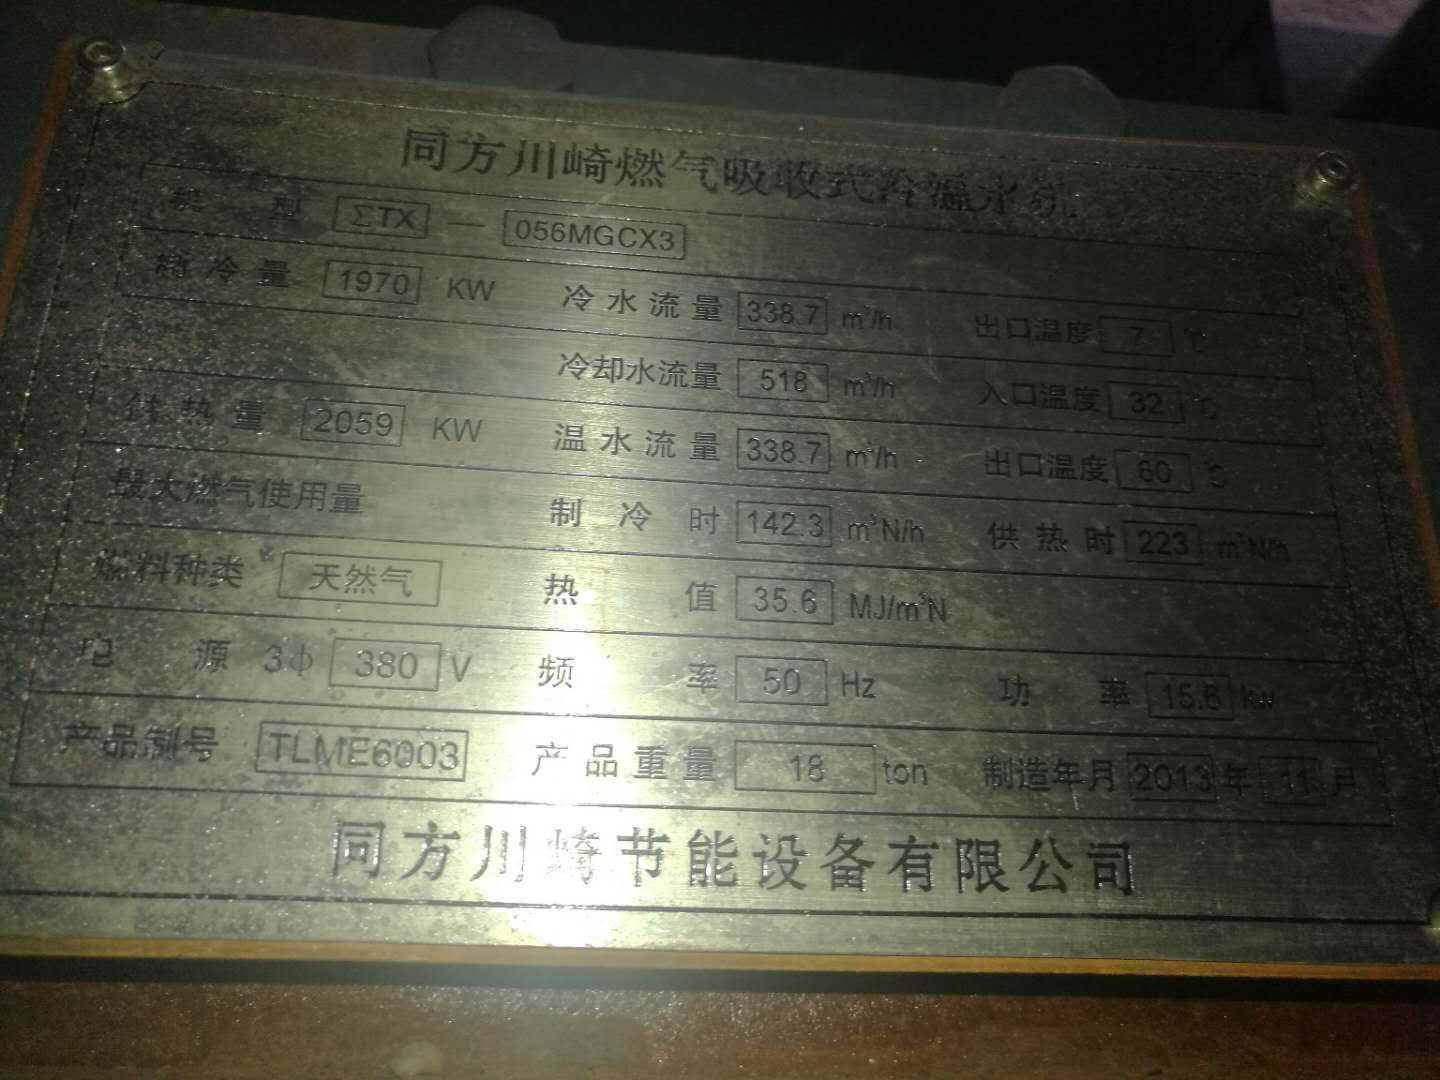 同方川崎燃气吸收式冷温水机
机 型 ΣTX — 056MGCX3
制冷量 1970 KW 冷水流量 338.7 m³/h 出口温度 7 ℃
冷却水流量 518 m³/h 入口温度 32 ℃
供热量 2059 KW 温水流量 338.7 m³/h 出口温度 60 ℃
最大燃气使用量 制冷时 142.3 m³N/h 供热时 223 m³N/h
燃料种类 天然气 热值 35.6 MJ/m³N
电 源 3φ 380 V 频率 50 Hz 功率 15.6 kw
产品制号 TLME6003 产品重量 18 ton 制造年月 2013 年 11 月
同方川崎节能设备有限公司